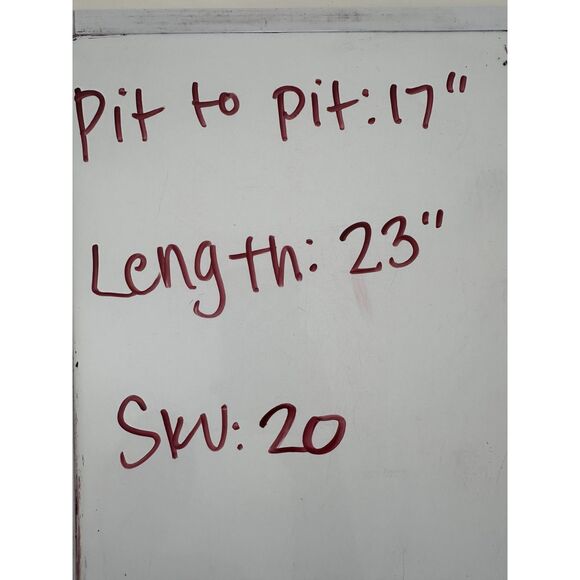 Pit to Pit: 17"
Length: 23"
SKU: 20